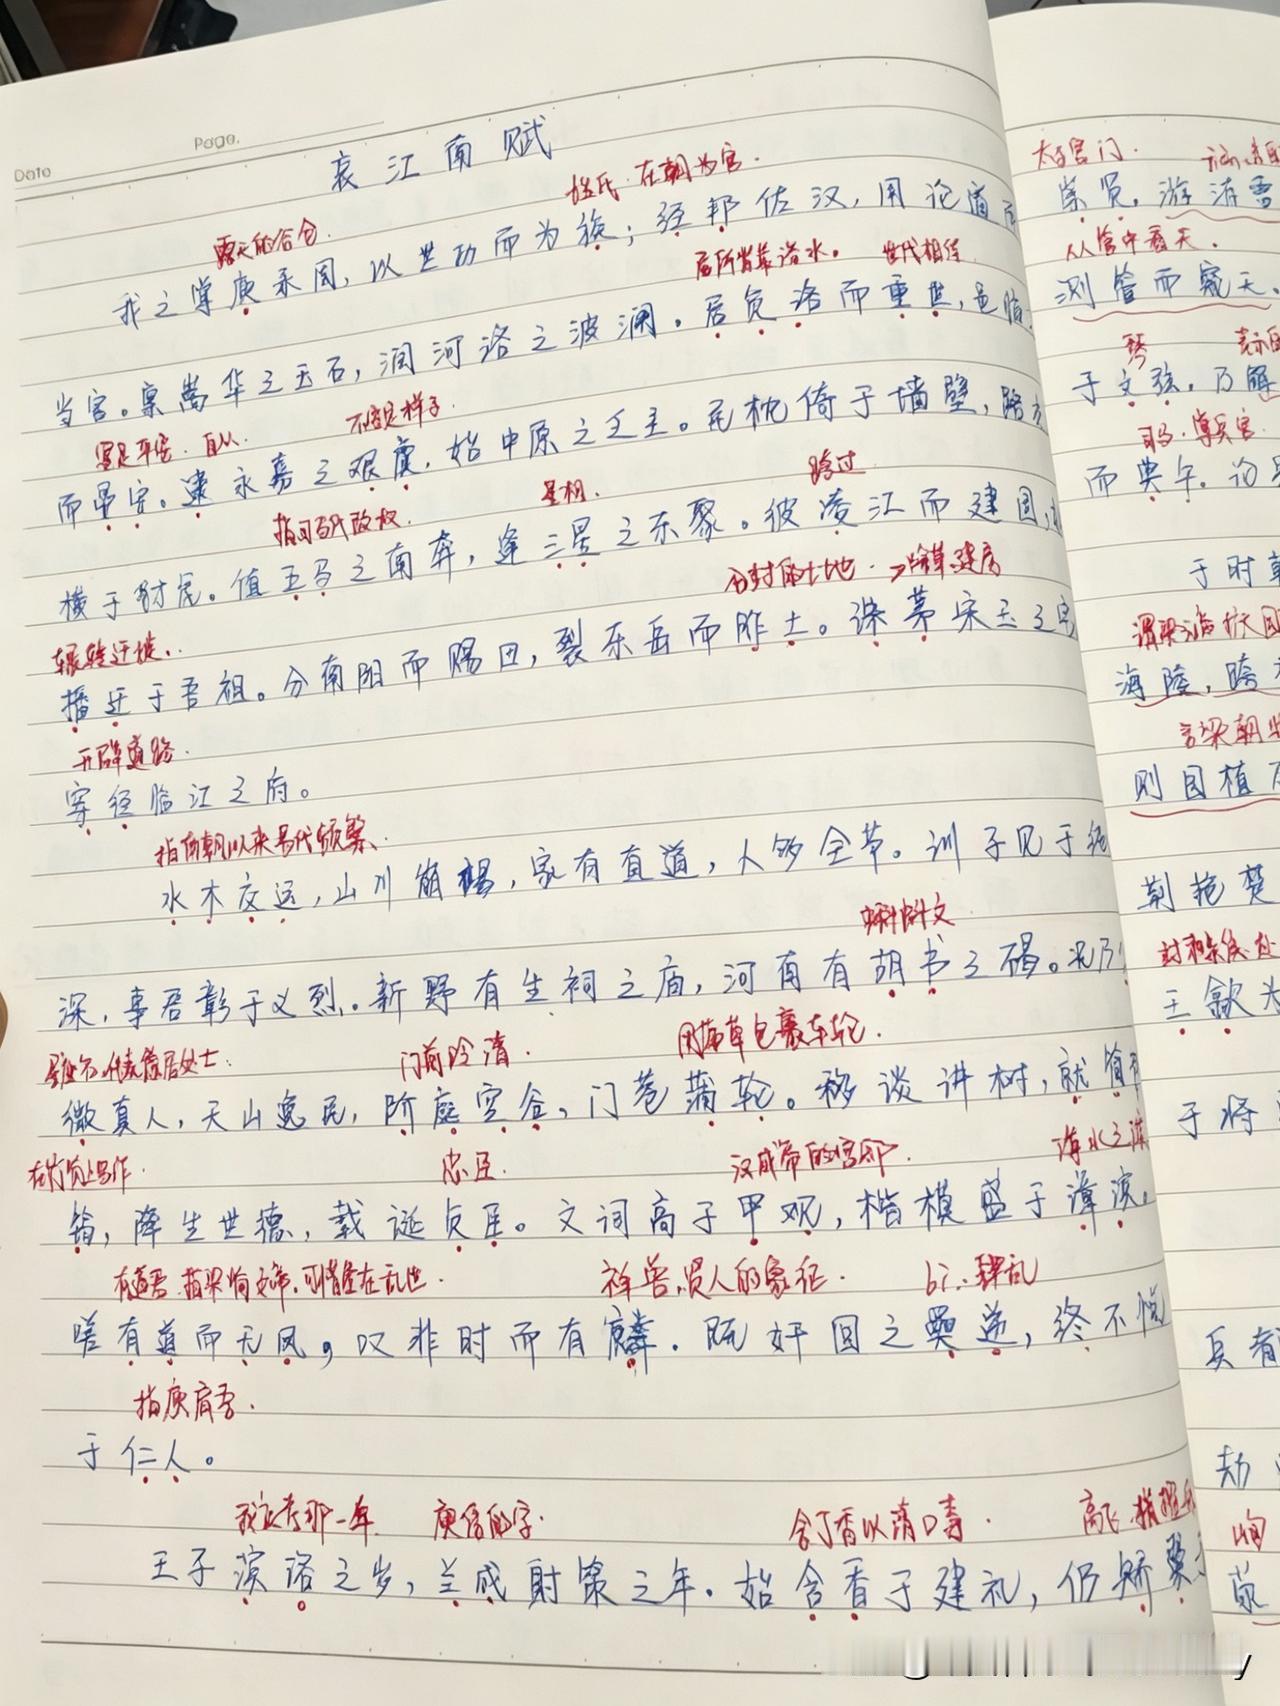 Page.
Date
哀江南赋
姓氏 在朝为官.
露天的谷仓.
我之掌庾承周，以世功而为族；经邦佐汉，用论道而
居所背靠洛水。 世代相传
当官。禀嵩华之玉石，润河洛之波澜。居负洛而重世，邑临
不修是样子.
而晏安。逮永嘉之艰虞，始中原之乏主。民枕倚于墙壁，路交
指司马氏政权. 星相. 跨过
横于豺虎。值五马之南奔，逢三星之东聚。彼凌江而建国，
分封的土地.
辗转迁徙.
播迁于吾祖。分南阳而赐田，裂东岳而胙土。诛茅宋玉之宅
开辟道路
穿径临江之府。
指南朝以来易代频繁.
水木交运，山川崩竭，家有直道，人多全节。训子见于纯
蝌蚪文
深，事君彰于义烈。新野有生祠之庙，河南有胡书之碣。况乃
门前冷清. 用蒲草包裹车轮.
微真人，天山逸民，阶庭空谷，门巷蒲轮。移谈讲树，就简
忠臣. 汉成帝的宫邸.
筠，降生世德，载诞贞臣。文词高于甲观，楷模盛于漳滨。
祥兽,贤人的象征.
嗟有道而无凤，叹非时而有麟. 既奸回之奰逆，终不悦
指庾肩吾.
于仁人。
庾信的字. 含丁香以清口毒.
王子滨洛之岁，兰成射策之年. 始含香于建礼，仍矫翼
太子宫门.
崇贤，游洊雷
从管中看天.
测管而窥天。
琴
于文弦，乃解
司马，掌兵官.
而典午. 论
于时朝
海陵，跨
言梁朝
则园植
荆艳楚
王歙为
于将
兵
劫